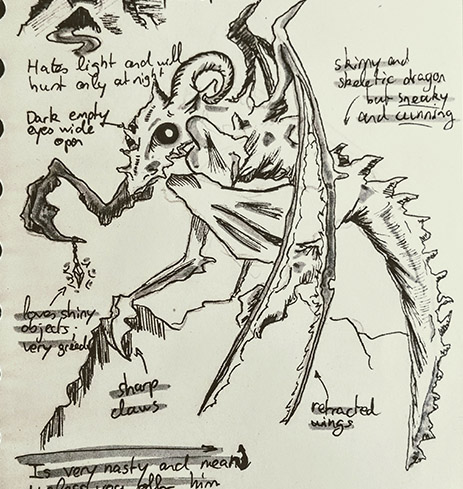 Hates light and will
hunt only at night
Dark empty
eyes wide
open
skinny and
skeletic dragon
but sneaky
and cunning
loves shiny
objects:
very greedy
sharp
claws
retracted
wings
Is very nasty and mean
him